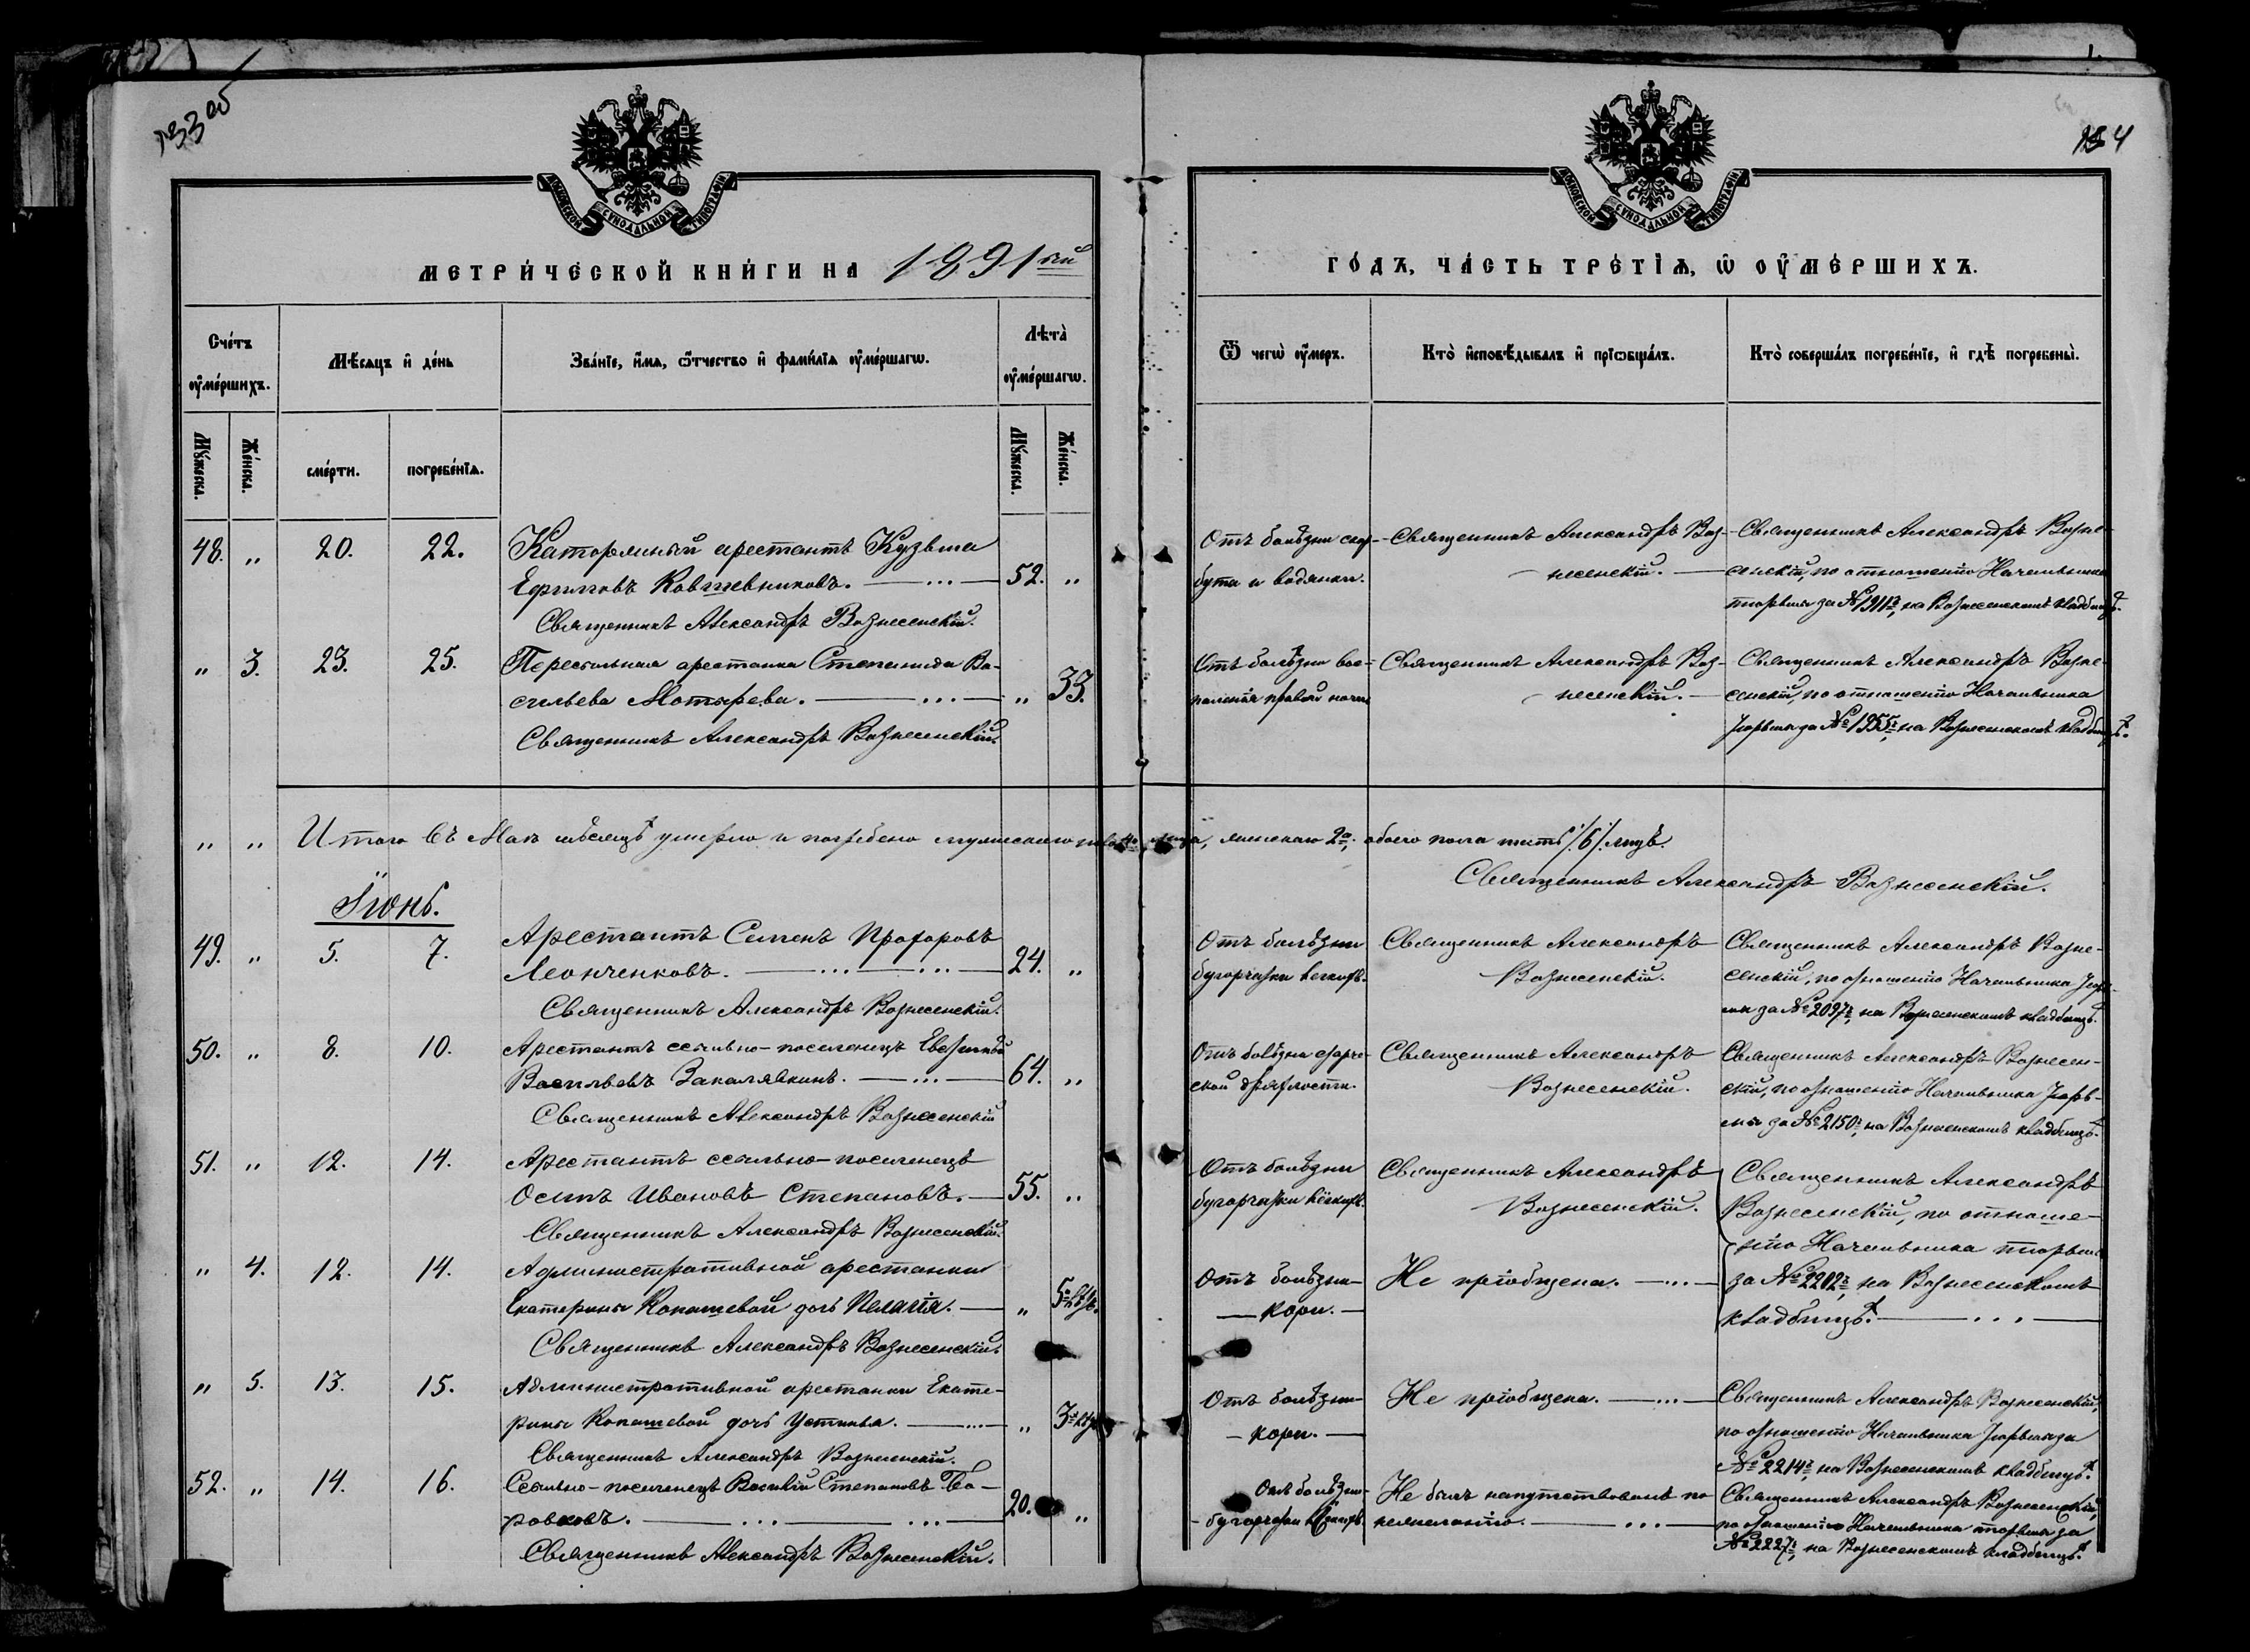 133 об
134
МОСКОВСКОЙ СѴНОДАЛЬНОЙ ТИПОГРАФІИ
МОСКОВСКОЙ СѴНОДАЛЬНОЙ ТИПОГРАФІИ
МЕТРИ́ЧЕСКОЙ КНИ́ГИ НА 1891ый
ГО́ДЪ, ЧА́СТЬ ТРЕ́ТІѦ, Ѡ҆ ОУ҆МЕ́РШИХЪ.
Сче́тъ оу҆ме́ршихъ.
Мѣ́сяцъ и҆ де́нь
Зва́нїе, и҆́мѧ, ѻ҆́тчество и҆ фами́лїѧ оу҆ме́ршагѡ.
Лѣ́та̀ оу҆ме́ршагѡ.
Ѿ чегѡ̀ оу҆́меръ.
Кто̀ и҆сповѣ́дывалъ и҆ прїѡбща́лъ.
Кто̀ соверша́лъ погребе́нїе, и҆ гдѣ̀ погребены̀.
Мꙋ́жеска.
Же́нска.
сме́рти.
погребе́нїѧ.
Мꙋ́жеска.
Же́нска.
48. „ 20. 22. Каторжный арестантъ Кузьма
Ефимовъ Ковшевниковъ. — ... — 52. „
Священникъ Александръ Вознесенскій.
Отъ болѣзни скор-
бута и водянки.
Священникъ Александръ Воз-
несенскій. —
Священникъ Александръ Возне-
сенскій, по отношенію Начальника
тюрьмы за № 1911ъ, на Вознесенскомъ кладбищѣ.
„ 3. 23. 25. Пересыльная арестанка Степанида Ва-
сильева Мотырева. — ... — „ 33.
Священникъ Александръ Вознесенскій.
Отъ болѣзни вос-
паленія правой почки
Священникъ Александръ Воз-
несенскій. —
Священникъ Александръ Возне-
сенскій, по отношенію Начальника
тюрьмы за № 1955ъ, на Вознесенскомъ кладбищѣ.
„ „ Итого въ Маѣ мѣсяцѣ умерло и погребено мужескаго пола женскаго 2а, обоего пола шесть /:6:/ лицъ.
Священникъ Александръ Вознесенскій.
Іюнь.
49. „ 5. 7. Арестантъ Семенъ Прохоровъ
Леонченковъ. — ... — ... — 24. „
Священникъ Александръ Вознесенскій.
Отъ болѣзни
бугорчатки легкихъ.
Священникъ Александръ
Вознесенскій.
Священникъ Александръ Возне-
сенскій, по отношенію Начальника Тюрь-
мы за № 2097ъ, на Вознесенскомъ кладбищѣ.
50. „ 8. 10. Арестантъ ссыльно-поселенецъ Евфимій
Васильевъ Закалявкинъ. — ... — 64. „
Священникъ Александръ Вознесенскій
Отъ болѣзни старче-
ской дряхлости.
Священникъ Александръ
Вознесенскій.
Священникъ Александръ Вознесен-
скій, по отношенію Начальника Тюрь-
мы за № 2150ъ, на Вознесенскомъ кладбищѣ.
51. „ 12. 14. Арестантъ ссыльно-поселенецъ
Осипъ Ивановъ Степановъ. — 55. „
Священникъ Александръ Вознесенскій.
Отъ болѣзни
бугорчатки легкихъ.
Священникъ Александръ
Вознесенскій.
Священникъ Александръ
Вознесенскій, по отноше-
нію Начальника тюрьмы
за № 2202ъ, на Вознесенскомъ
кладбищѣ. — ... —
„ 4. 12. 14. Административной арестанки
Екатерины Копашевой дочь Пелагія. — „ 5
Священникъ Александръ Вознесенскій.
Отъ болѣзни
— кори. —
Не пріобщена. — ... —
„ 5. 13. 15. Административной арестанки Екате-
рины Копашевой дочь Устинья. — ... — „ 3
Священникъ Александръ Вознесенскій.
Отъ болѣзни
— кори. —
Не пріобщена. — ... —
Священникъ Александръ Вознесенскій,
по отношенію Начальника Тюрьмы за
№ 2214ъ, на Вознесенскомъ кладбищѣ.
52. „ 14. 16. Ссыльно-поселенецъ Василій Степановъ Бо-
ровковъ. — ... — ... — 20. „
Священникъ Александръ Вознесенскій.
Отъ болѣзни
бугорчатки легкихъ.
Не былъ напутствованъ по
нежеланію. — ... —
Священникъ Александръ Вознесенскій,
по отношенію Начальника тюрьмы за
№ 2227ъ, на Вознесенскомъ кладбищѣ.